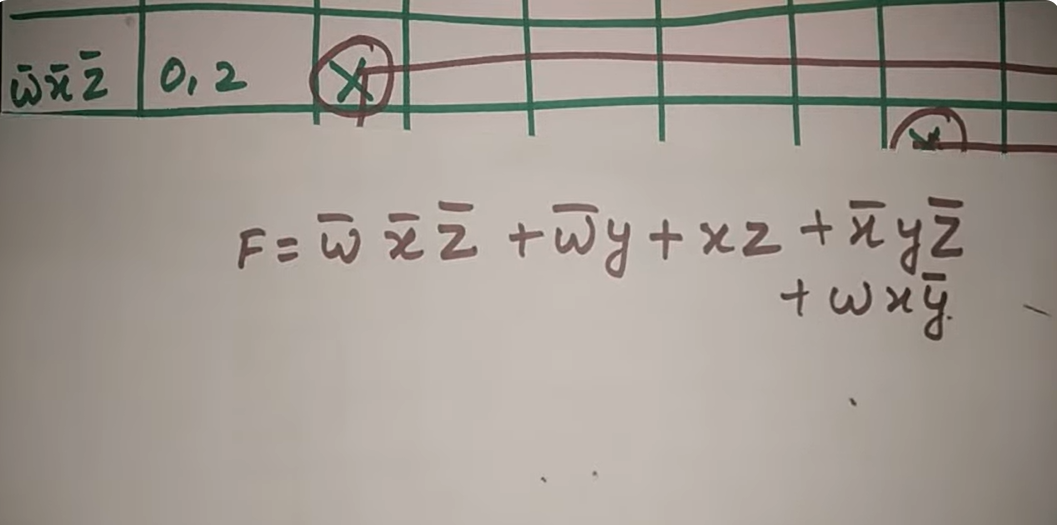 w̄ x̄ z̄ 0, 2 X
X
F = w̄ x̄ z̄ + w̄y + xz + x̄yz̄
+ wxȳ.